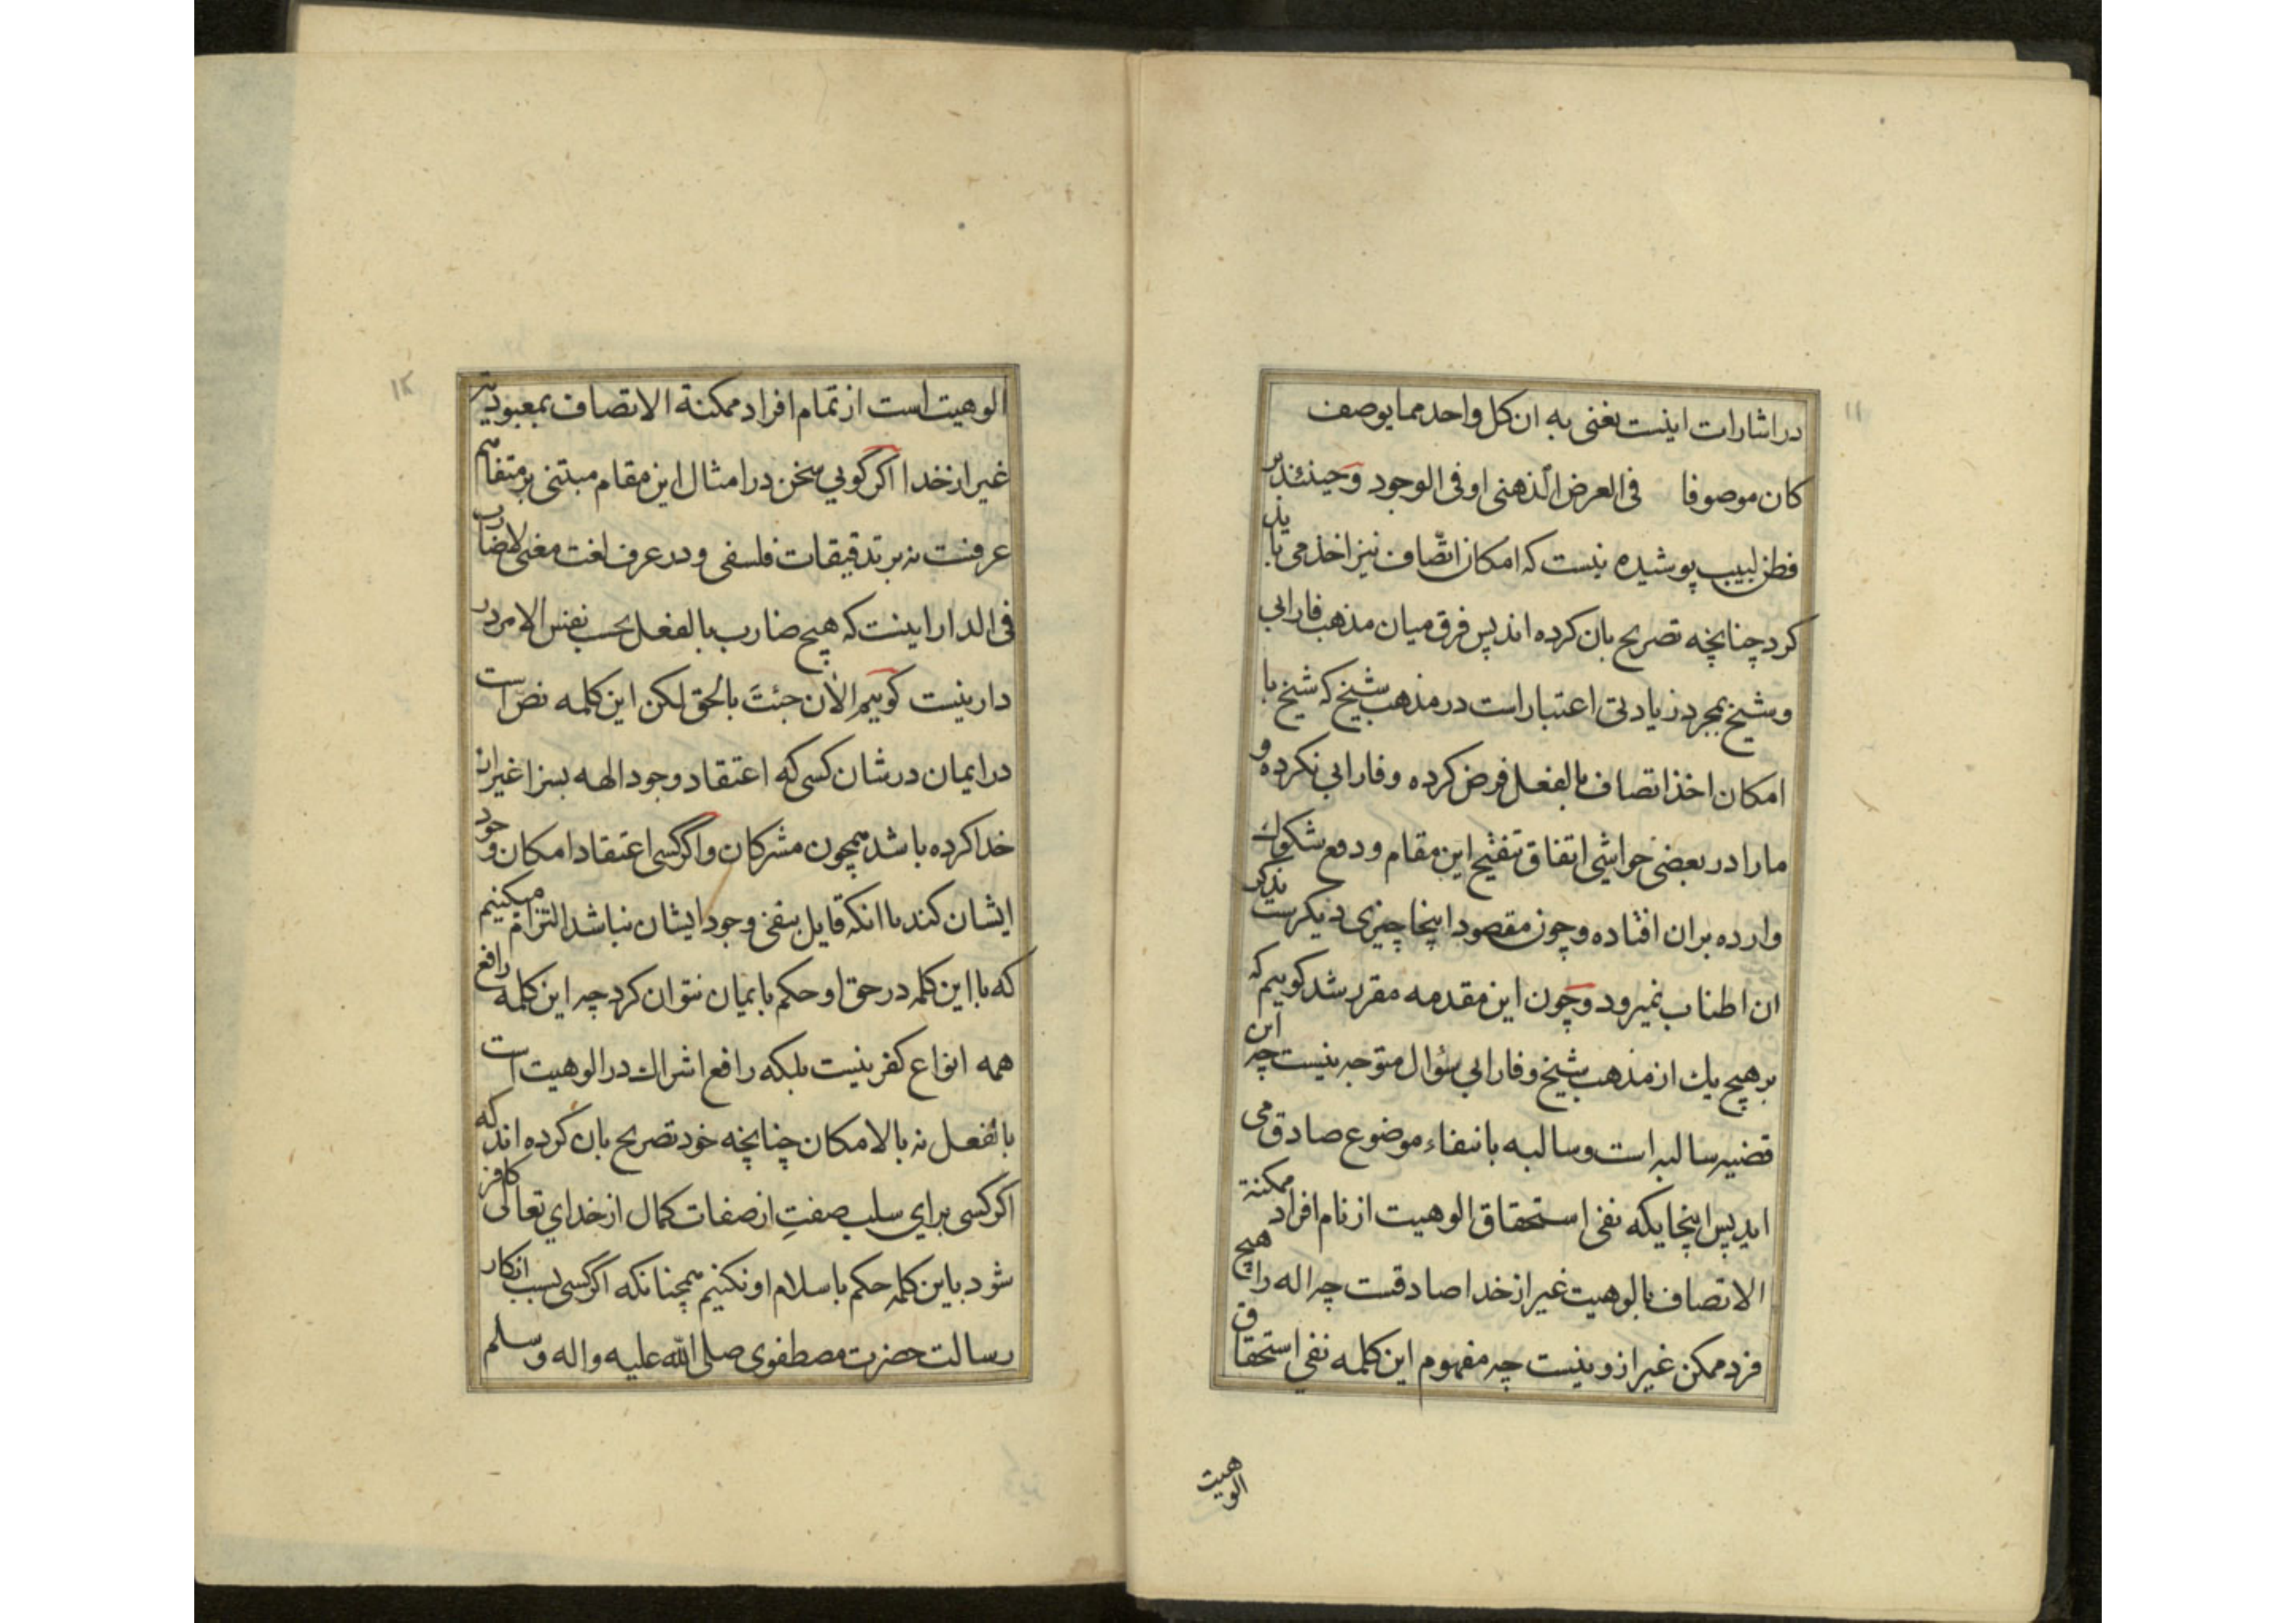 ۱۱
در اشارات اینست یعنی به ان کل واحد مما یوصف
کان موصوفا فی العرض الذهنی او فی الوجود وحینئذ بر
فطن لبیب پوشیده نیست که امکان اتّصاف نیز اخذ می باید
کرد چنانچه تصریح بان کرده اند پس فرق میان مذهب فارابی
و شیخ بمجرد زیادتی اعتبار است در مذهب شیخ که شیخ با
امکان اخذ اتصاف بالفعل فرض کرده و فارابی نکرده و
ما را در بعضی حواشی اتفاق تنقیح این مقام و دفع شکوك
وارده بران افتاده و چون مقصود اینجا چیزی دیکرست بذکر
ان اطناب نمیرود و چون این مقدمه مقرر شد کوییم که
بر هیچ یك از مذهب شیخ و فارابی سؤال متوجه نیست چه این
قضیه سالبه است و سالبه بانتفاء موضوع صادق می
اید پس اینجا یکه نفی استحقاق الوهیت از نام افراد ممکنة
الاتصاف بالوهیت غیر از خدا صادقست چه اله را هیچ
فرد ممکن غیر ازو نیست چه مفهوم این کلمه نفی استحقاق
الوهیت
۱۲
الوهیت است از تمام افراد ممکنة الاتصاف بمعبودیت
غیر از خدا اکر کویی سخن در امثال این مقام مبتنی بر متفاهم
عرفست نه بر تدقیقات فلسفی و در عرف لغت معنی لاضارب
فی الدار اینست که هیچ ضارب بالفعل بحسب نفس الامر در
دار نیست کوییم الأن جئتَ بالحق لکن این کلمه نصّ است
در ایمان در شان کسی که اعتقاد وجود الهه بسزا غیر از
خدا کرده باشد همچون مشرکان و اکر کسی اعتقاد امکان وجود
ایشان کند با انکه قایل بنفی وجود ایشان نباشد التزام میکنیم
که با این کلمه در حق او حکم بایمان نتوان کرد چه این کلمه رافع
همه انواع کفر نیست بلکه رافع اشراك در الوهیت است
بالفعل نه بالامکان چنانچه خود تصریح بان کرده اند که
اکر کسی برای سلب صفتِ از صفات کمال از خدای تعالی کافر
شود باین کلمه حکم باسلام او نکنیم همچنانکه اکر کسی بسبب انکار
رسالت حضرت مصطفوی صلی الله علیه واله وسلم